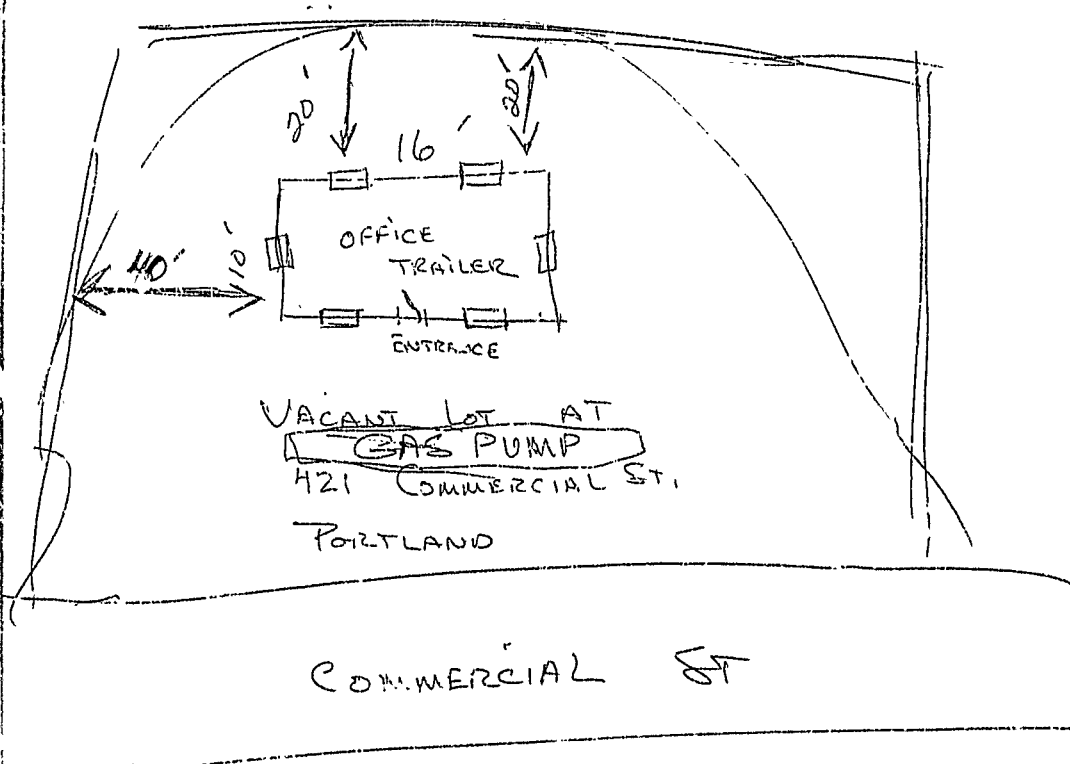 20'
20'
16'
OFFICE
TRAILER
10'
40'
ENTRANCE
VACANT LOT AT
GAS PUMP
421 COMMERCIAL ST.
PORTLAND
COMMERCIAL ST